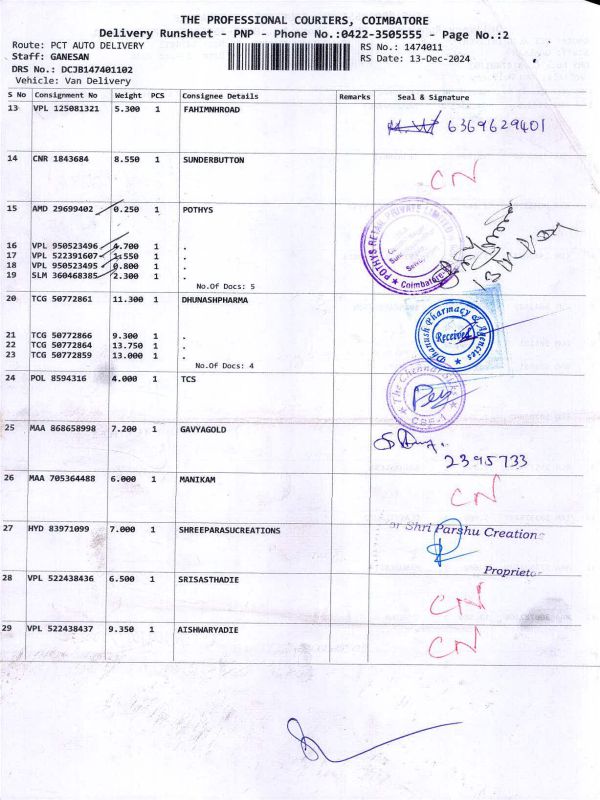 THE PROFESSIONAL COURIERS, COIMBATORE
Delivery Runsheet - PNP - Phone No.:0422-3505555 - Page No.:2
Route: PCT AUTO DELIVERY RS No.: 1474011
Staff: GANESAN RS Date: 13-Dec-2024
DRS No.: DCJB147401102
Vehicle: Van Delivery
S No Consignment No Weight PCS Consignee Details Remarks Seal & Signature
13 VPL 125081321 5.300 1 FAHIMNHROAD
6369629401
14 CNR 1843684 8.550 1 SUNDERBUTTON
CN
15 AMD 29699402 0.250 1 POTHYS
POTHYS RETAIL PRIVATE LIMITED
Coimbatore
16 VPL 950523496 4.700 1 .
17 VPL 522391607 1.550 1 .
18 VPL 950523495 0.800 1 .
19 SLM 360468385 2.300 1 .
No.Of Docs: 5
20 TCG 50772861 11.300 1 DHUNASHPHARMA
Dhanush Pharmacy & Agencies
Received
21 TCG 50772866 9.300 1 .
22 TCG 50772864 13.750 1 .
23 TCG 50772859 13.000 1 .
No.Of Docs: 4
24 POL 8594316 4.000 1 TCS
The Chennai Silks
CBE-1
25 MAA 868658998 7.200 1 GAVYAGOLD
2395733
26 MAA 705364488 6.000 1 MANIKAM
CN
27 HYD 83971099 7.000 1 SHREEPARASUCREATIONS
or Shri Parshu Creations
Proprietor
28 VPL 522438436 6.500 1 SRISASTHADIE
CN
29 VPL 522438437 9.350 1 AISHWARYADIE
CN